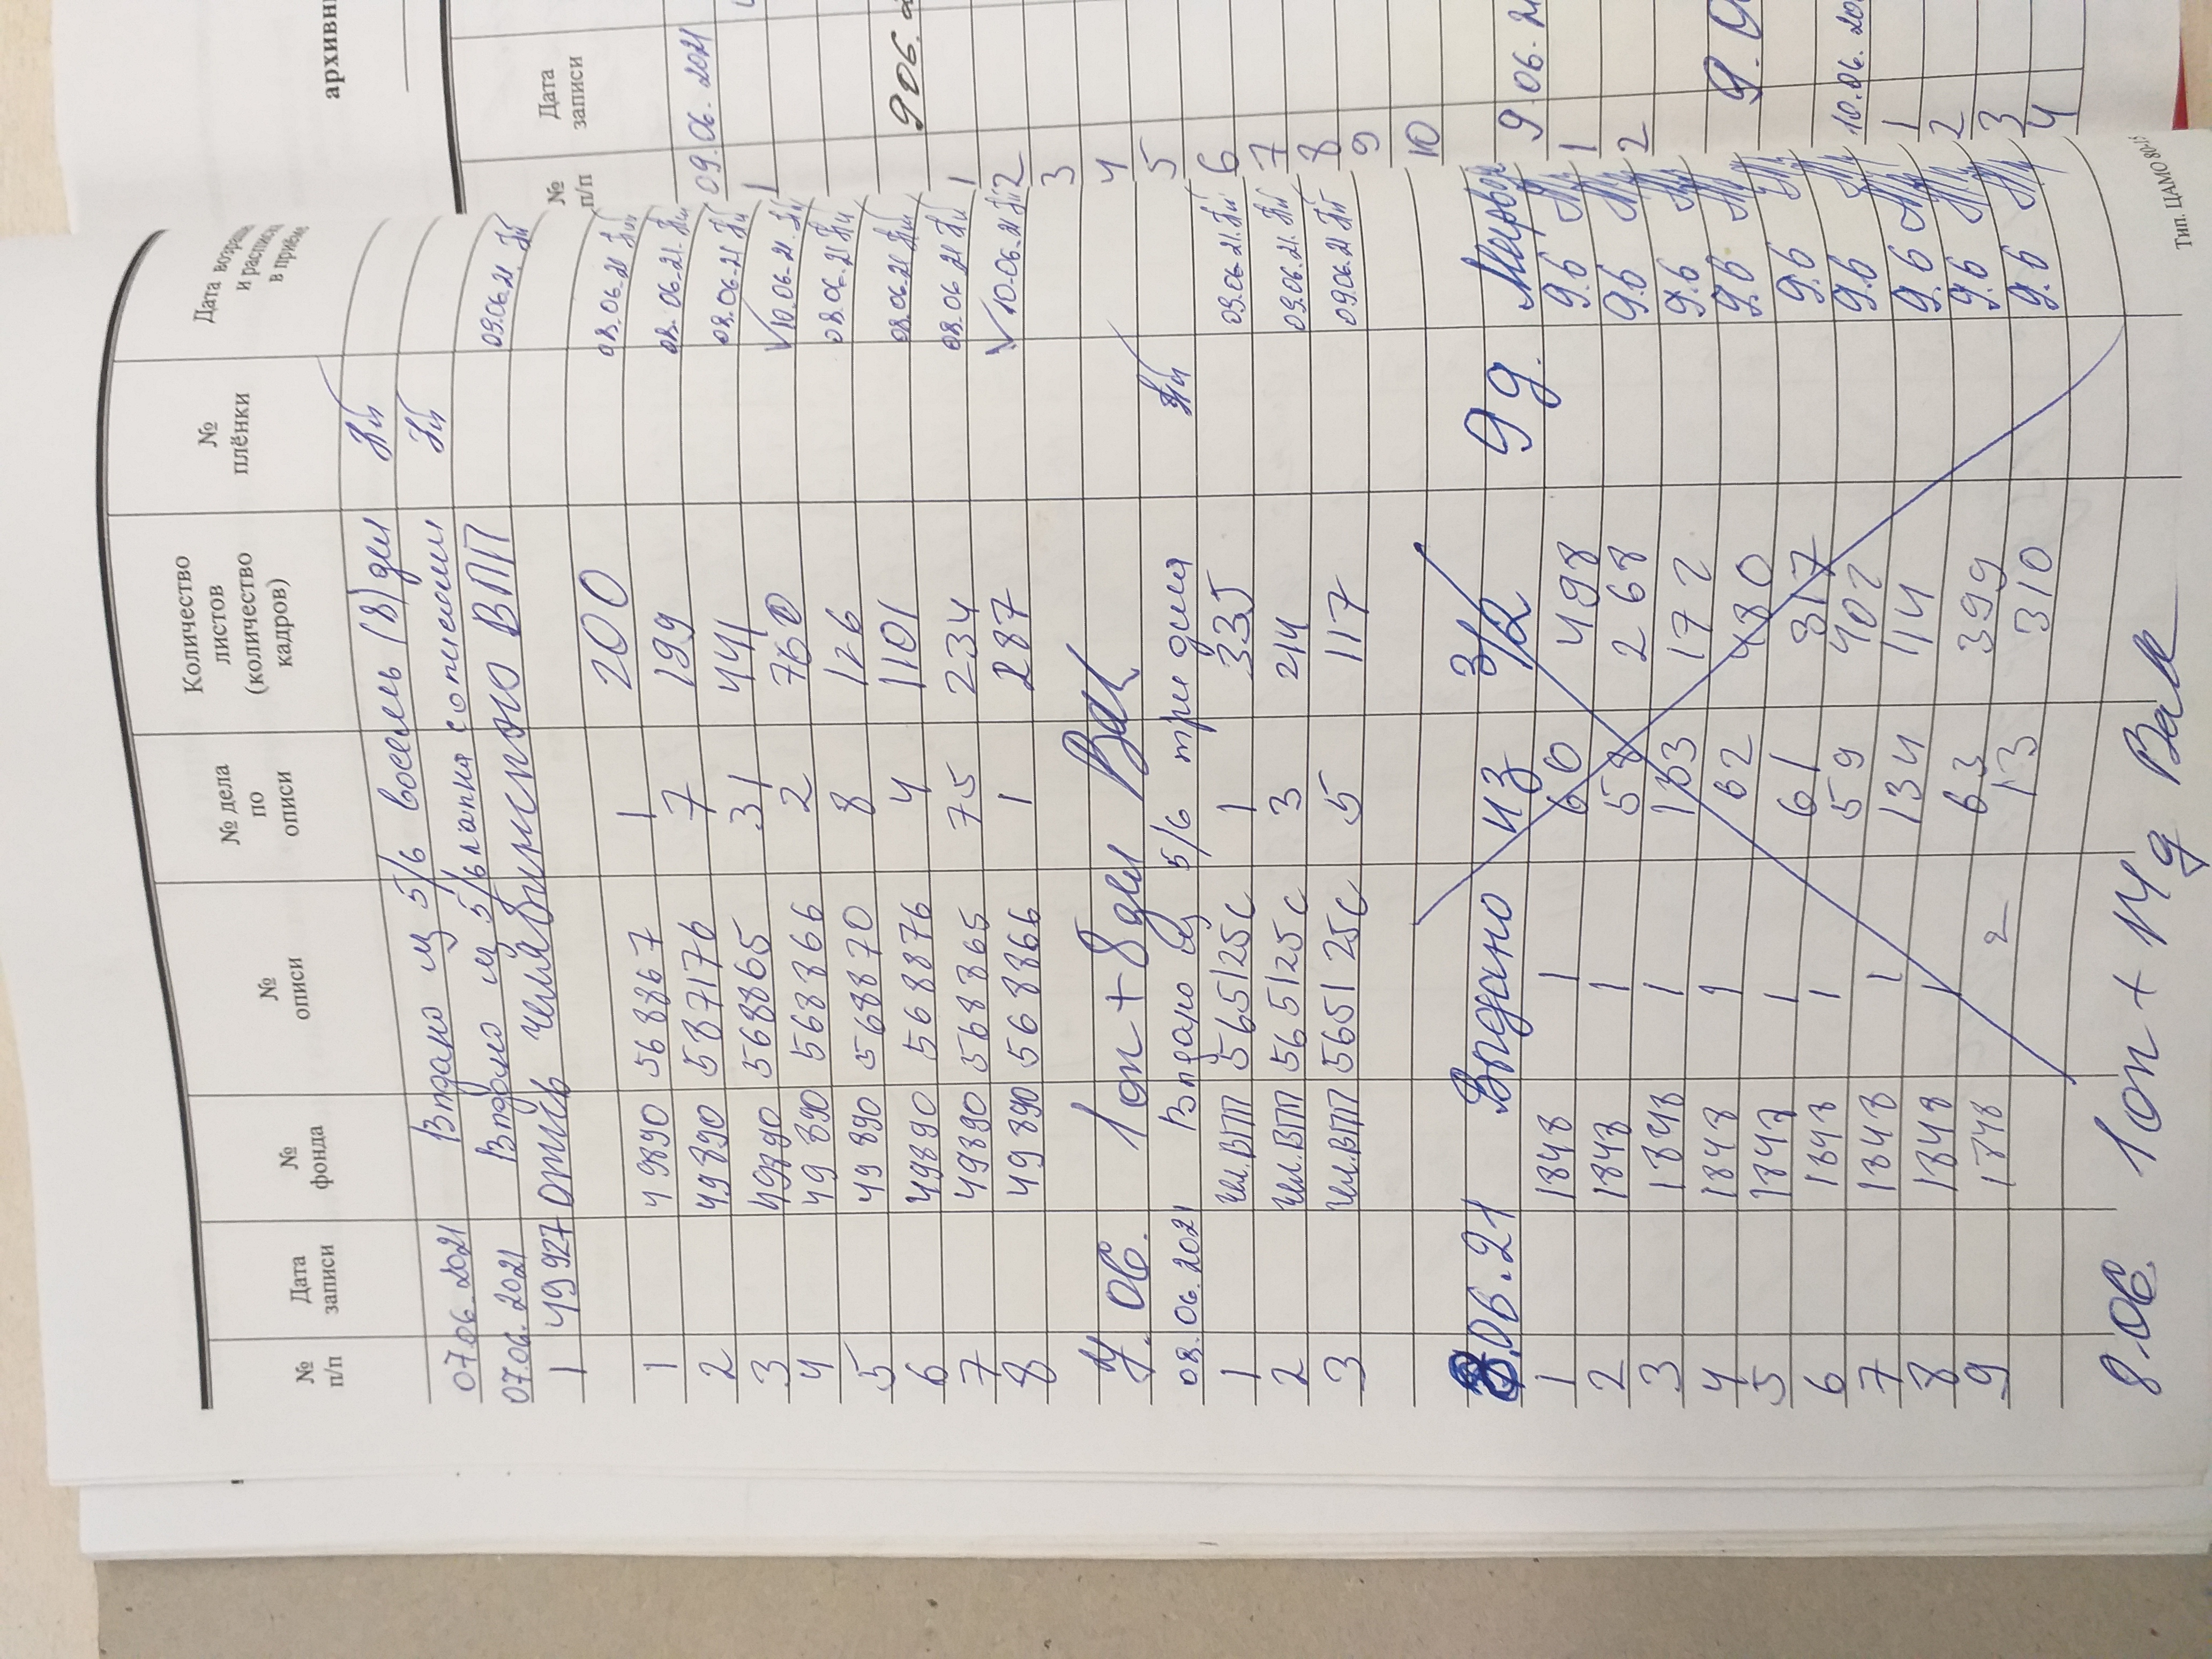 № п/п Дата записи № фонда № описи № дела по описи Количество листов (количество кадров) № плёнки Дата возвра и расписк в приёме
07.06.2021 Выдано из 5/6 восемь (8) дел
07.06.2021 Выдано из 5/6 папка с описями
1 49927 опись челябинского ВПП 09.06.21
1 49890 568867 1 200 08.06.21
2 49890 587176 7 199 08.06.21
3 49890 568865 31 441 08.06.21
4 49890 568866 2 760 √10.06.21
5 49890 568870 8 126 08.06.21
6 49890 568876 4 1101 08.06.21
7 49890 568865 75 234 08.06.21
8 49890 568866 1 287 √10.06.21
7.06. 1оп + 8 дел Вак
08.06.2021 Выдано из 5/6 три дела
1 чел.ВПП 565125с 1 335 09.06.21
2 чел.ВПП 565125с 3 214 09.06.21
3 чел.ВПП 565125с 5 117 09.06.21
8.06.21 Выдано из 3/2 9д.
1 1848 1 60 498 9.6
2 1848 1 58 268 9.6
3 1848 1 133 172 9.6
4 1848 1 62 480 9.6
5 1848 1 61 317 9.6
6 1848 1 59 402 9.6
7 1848 1 134 114 9.6
8 1848 1 63 399 9.6
9 1848 2 13 310 9.6
8.06. 1оп + 14д Вак
Тип. ЦАМО 80-15
архивн
№ п/п Дата записи
09.06.2021
1
9.06.
1
2
3
4
5
6
7
8
9
10
9.06.21
1
2
9.0
10.06.20
1
2
3
4